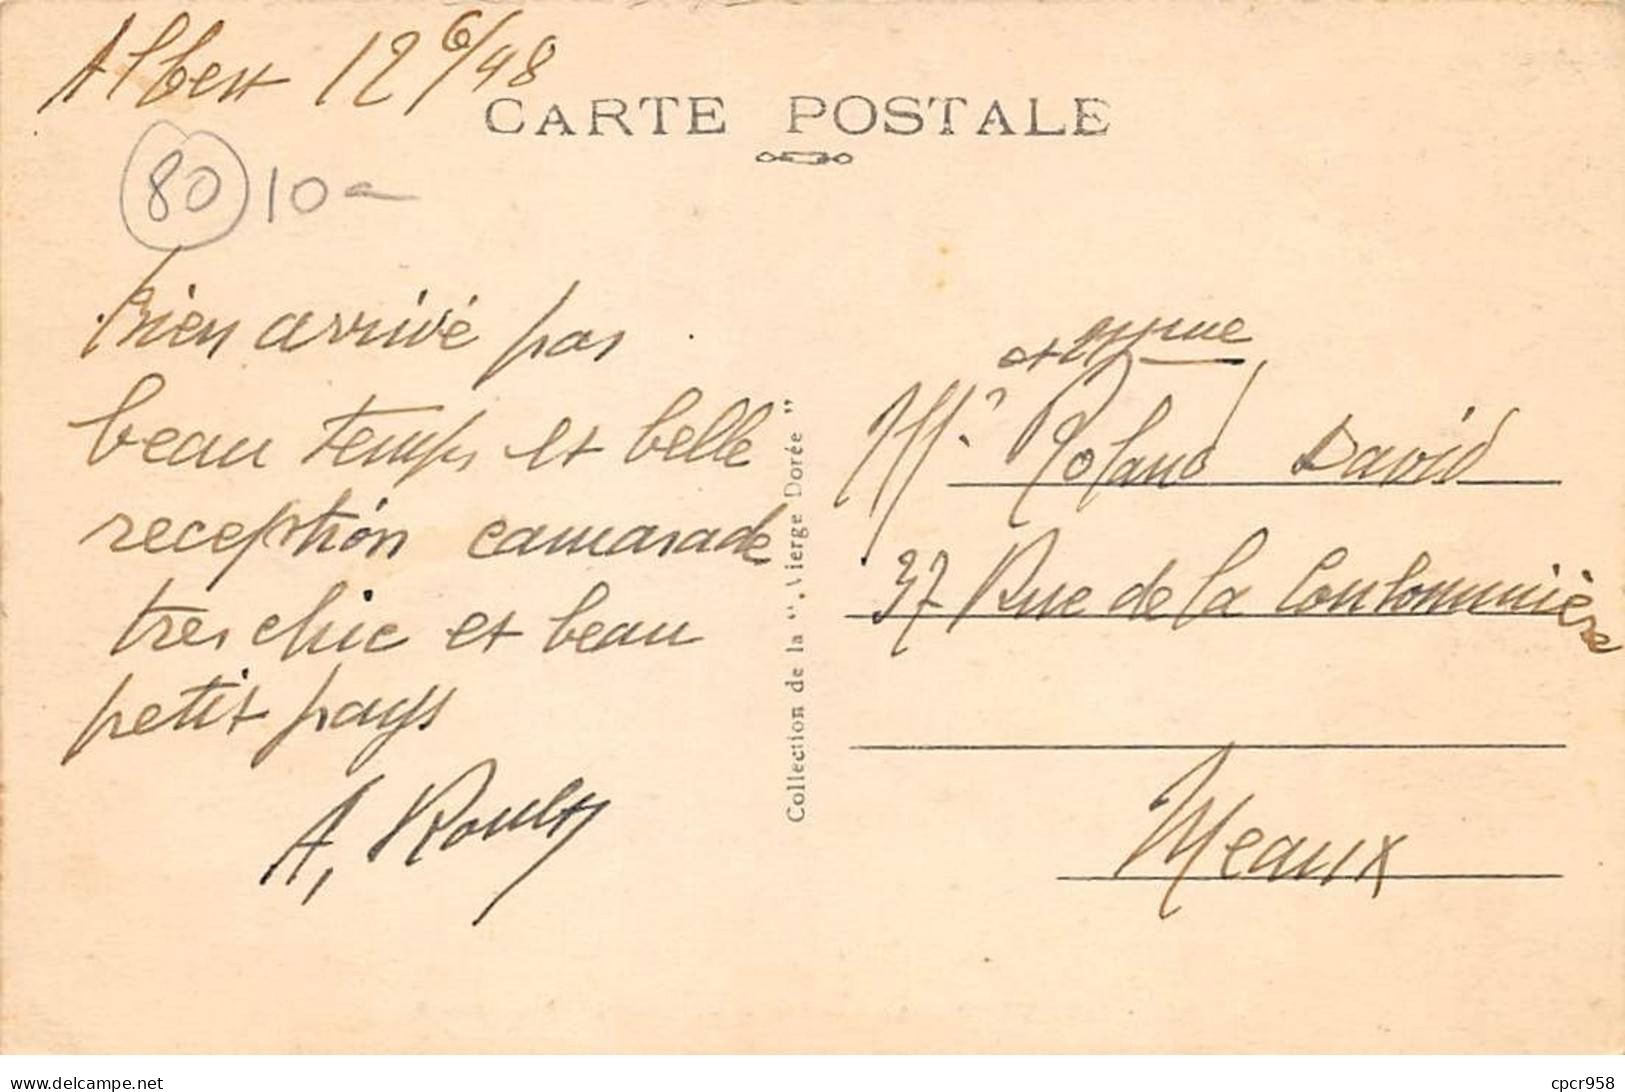 Albert 12 6/48
CARTE POSTALE
80 10
Bien arrivé pas
beau temps et belle
reception camarade
tres chic et beau
petit pays
A. Roult
Collection de la "Vierge Dorée"
et
Mr Roland David
37 Rue de la Coulommière
Meaux
www.delcampe.net
cpcr958